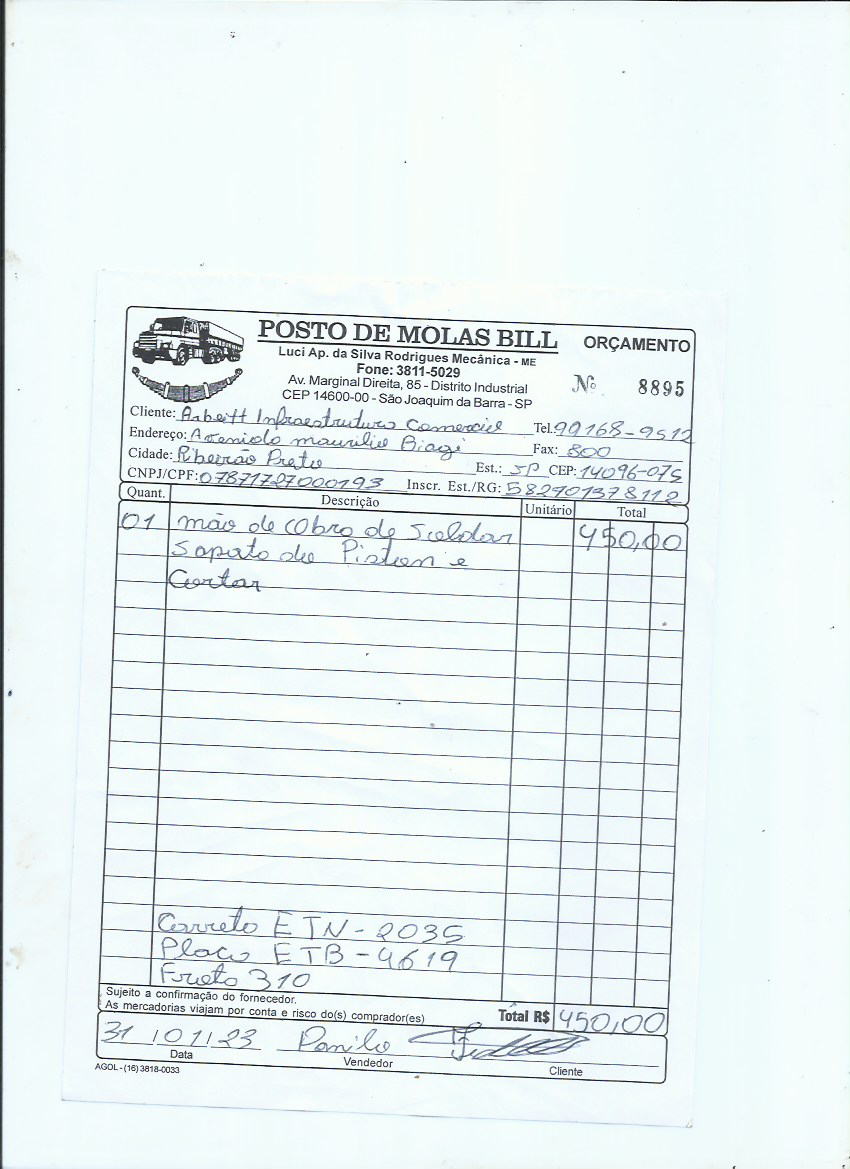 POSTO DE MOLAS BILL
ORÇAMENTO
Luci Ap. da Silva Rodrigues Mecânica - ME
Fone: 3811-5029
Av. Marginal Direita, 85 - Distrito Industrial
CEP 14600-00 - São Joaquim da Barra - SP
Nº 8895
Cliente: Arbeitt Infraestrutura Comercial Tel. 99168-9512
Endereço: Avenida maurilio Biagi Fax: 800
Cidade: Ribeirão Preto Est.: SP CEP: 14096-075
CNPJ/CPF: 07871727000193 Inscr. Est./RG: 582701378112
Quant. Descrição Unitário Total
01 mão de Obra de Soldar 450,00
Sapata do Piston e
Cortar
Carreta ETN-2035
Placa ETB-4619
Frota 310
Sujeito a confirmação do fornecedor.
As mercadorias viajam por conta e risco do(s) comprador(es)
Total R$ 450,00
31/01/23 Danilo
Data Vendedor Cliente
AGOL - (16) 3818-0033